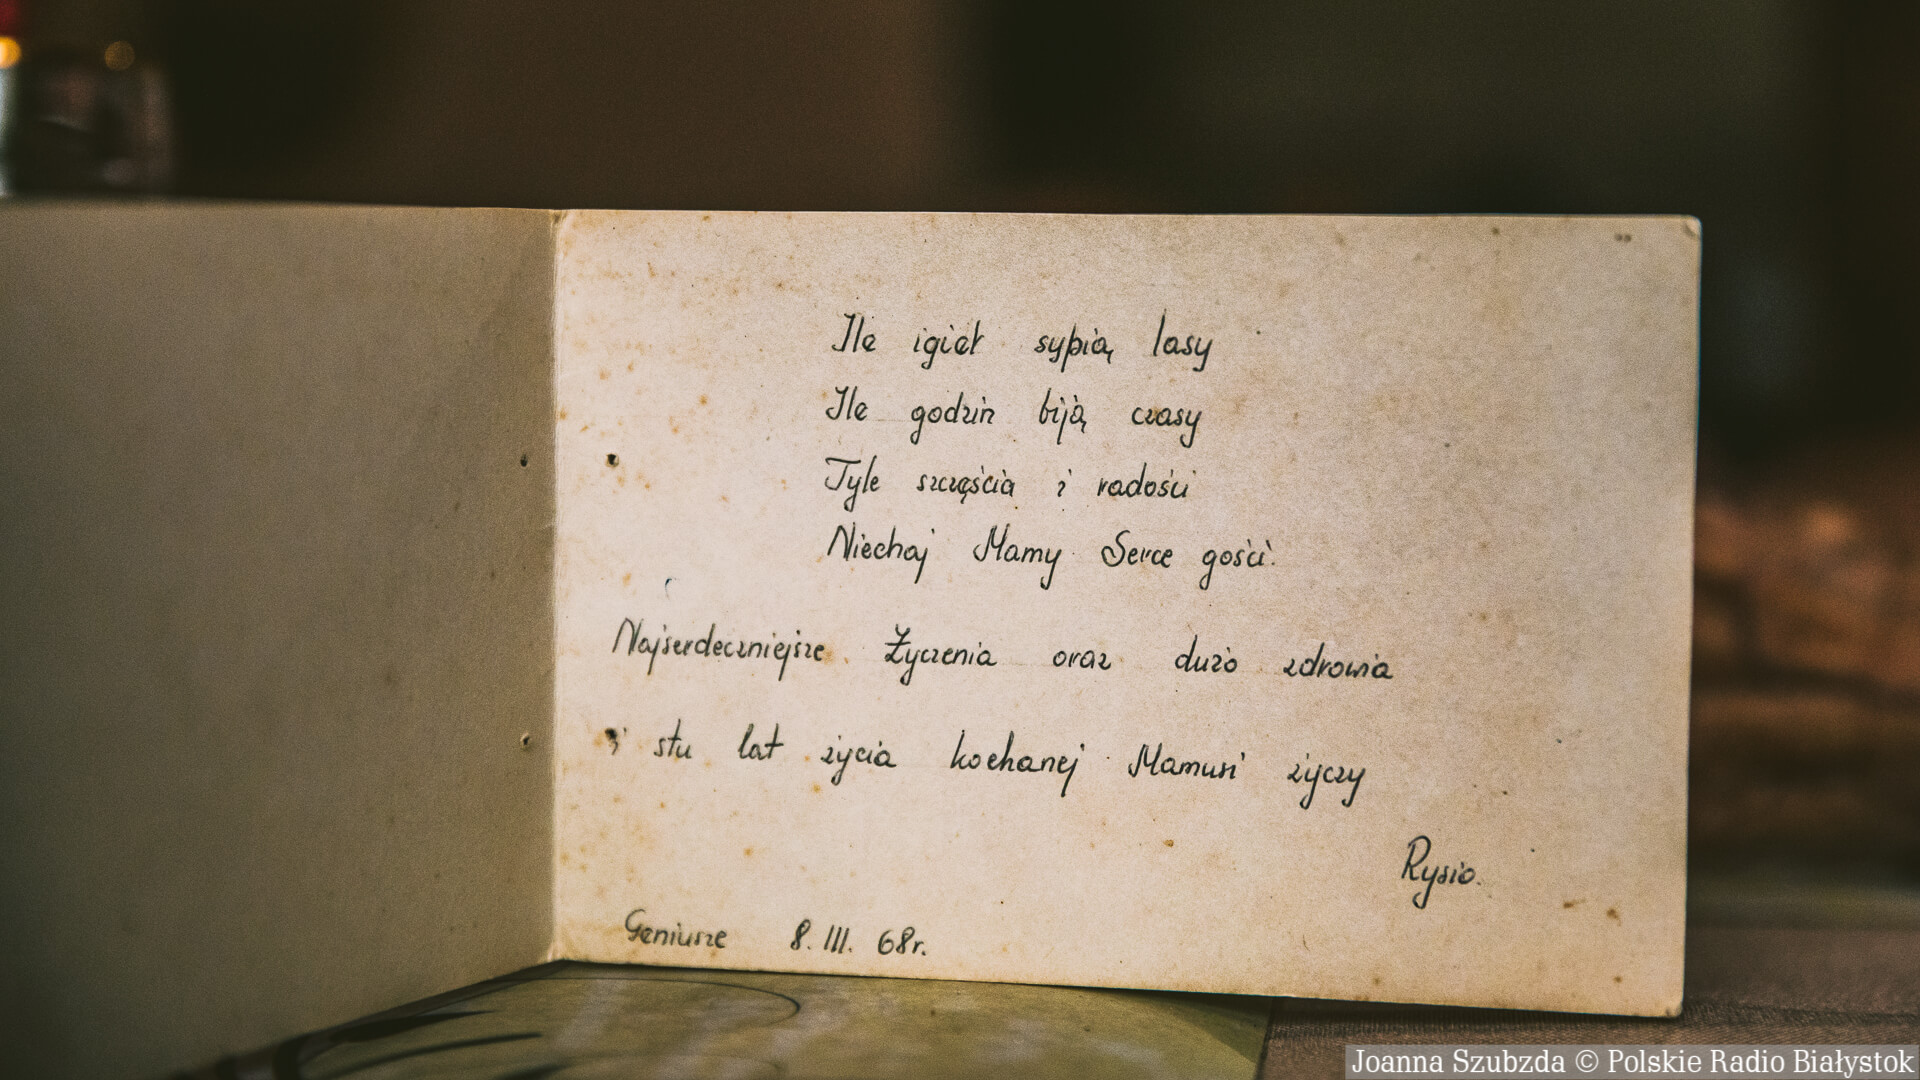 Ile igieł sypią lasy
Ile godzin biją czasy
Tyle szczęścia i radości
Niechaj Mamy Serce gości.
Najserdeczniejsze Życzenia oraz dużo zdrowia
i stu lat życia kochanej Mamusi życzy
Rysio.
Geniusze 8. III. 68r.
Joanna Szubzda © Polskie Radio Białystok